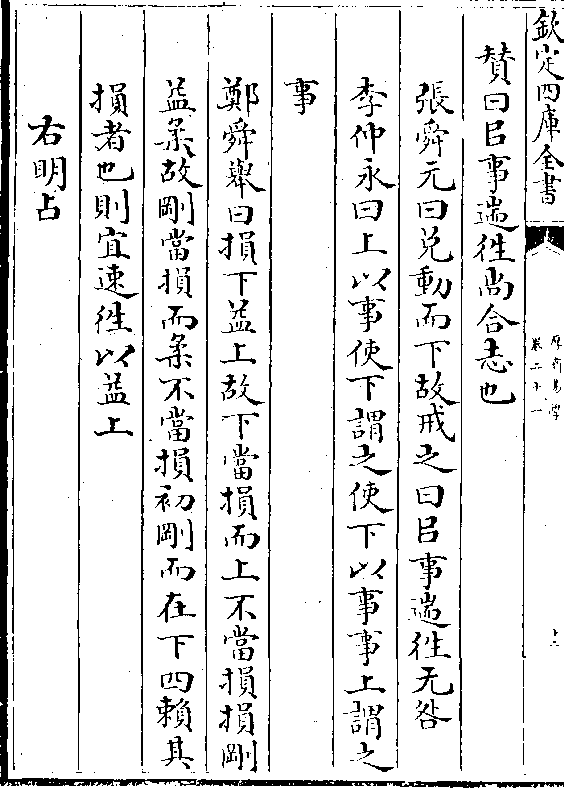 欽定四庫全書
厚齋易學
卷二十一
十二
贊曰㠯事遄徃尚合志也
張舜元曰兑動而下故戒之曰㠯事遄徃无咎
李仲永曰上以事使下謂之使下以事事上謂之
事
鄭舜舉曰損下益上故下當損而上不當損損剛
益柔故剛當損而柔不當損初剛而在下四賴其
損者也則宜速徃以益上
右明占